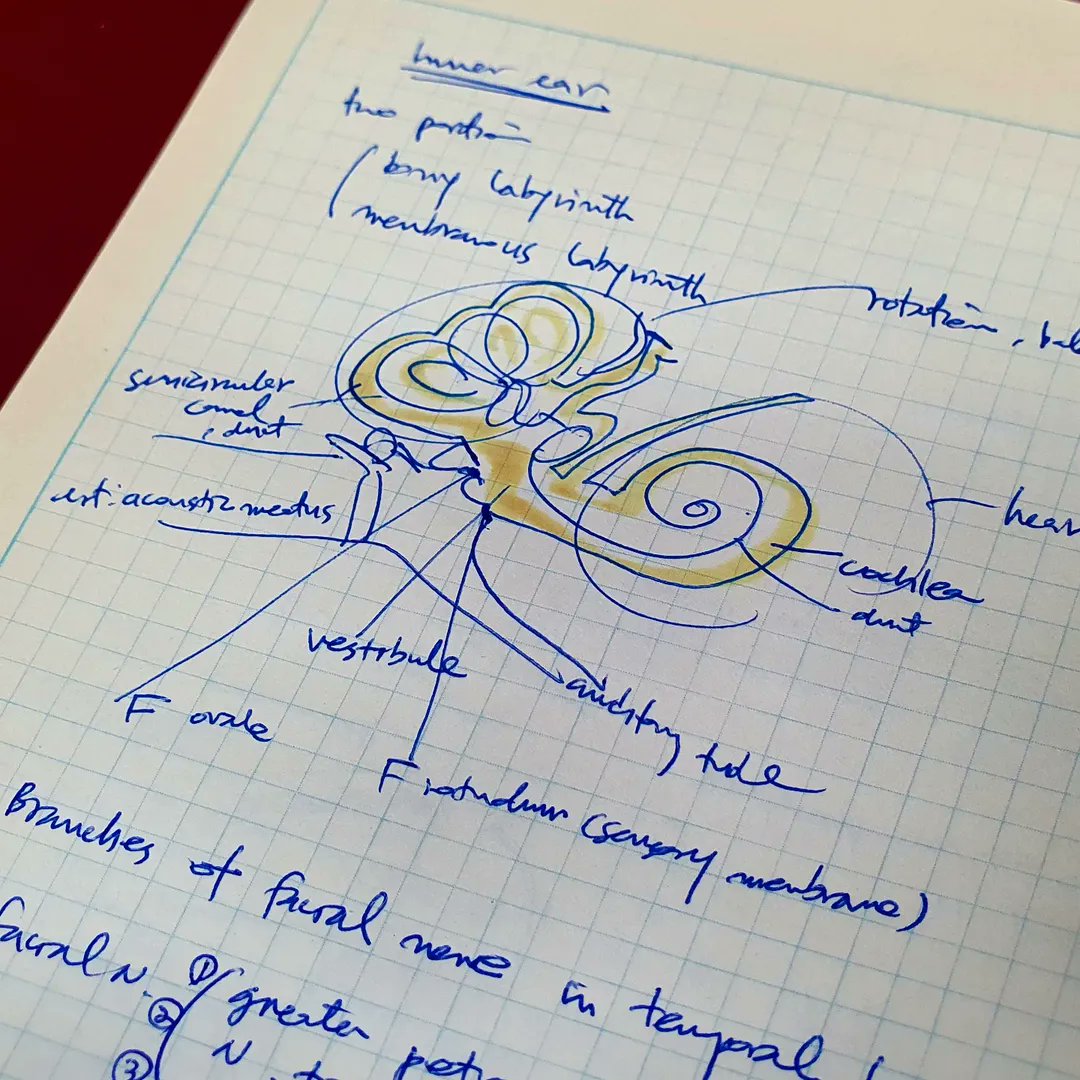 Inner ear
two portion
bony labyrinth
membranous labyrinth
rotation, bal
semicircular
canal
, duct
ext. acoustic meatus
hear
cochlea
duct
vestibule
auditory tube
F ovale
F rotundum (sensory membrane)
Branches of facial nerve in temporal
facial N. ① greater
② N
③